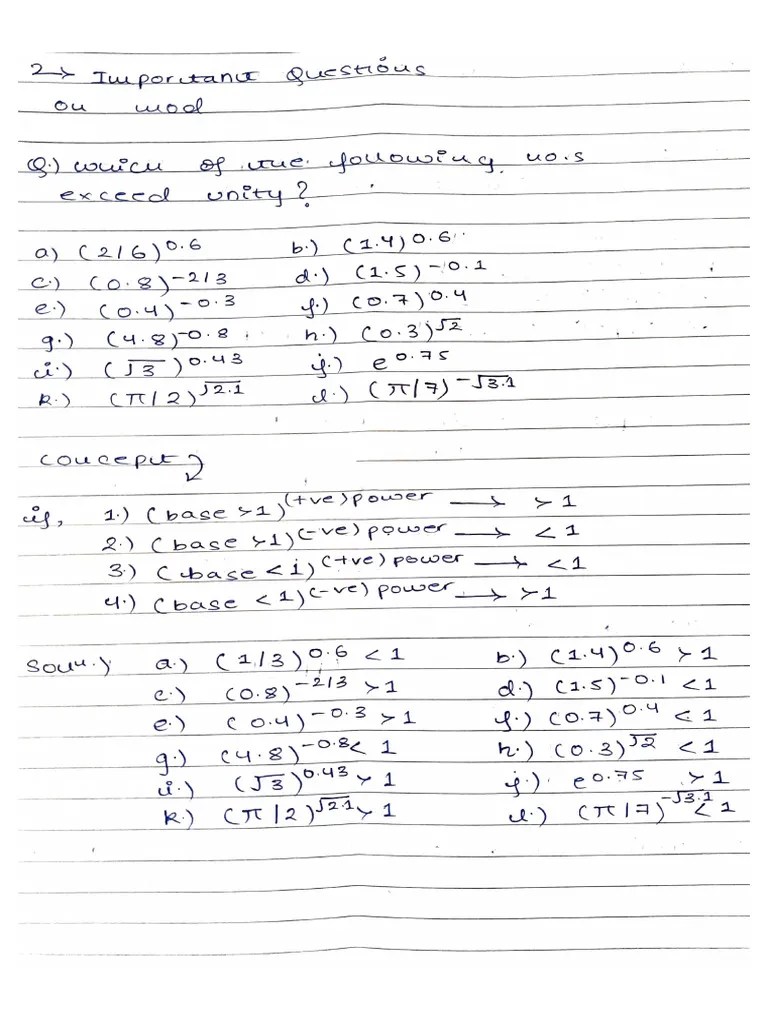 2→ Important Questions
on mod
Q.) which of the following no.s
exceed unity?
a) (2/6)^0.6 b.) (1.4)^0.6
c.) (0.8)^-2/3 d.) (1.5)^-0.1
e.) (0.4)^-0.3 f.) (0.7)^0.4
g.) (4.8)^-0.8 h.) (0.3)^√2
i.) (√3)^0.43 j.) e^0.75
k.) (π/2)^√2.1 l.) (π/7)^-√3.1
concept
if, 1.) (base >1)^(+ve) power → >1
2.) (base >1)^(-ve) power → <1
3.) (base <1)^(+ve) power → <1
4.) (base <1)^(-ve) power → >1
Soln.) a.) (1/3)^0.6 <1 b.) (1.4)^0.6 >1
c.) (0.8)^-2/3 >1 d.) (1.5)^-0.1 <1
e.) (0.4)^-0.3 >1 f.) (0.7)^0.4 <1
g.) (4.8)^-0.8 < 1 h.) (0.3)^√2 <1
i.) (√3)^0.43 >1 j.) e^0.75 >1
k.) (π/2)^√2.1 >1 l.) (π/7)^-√3.1 <1